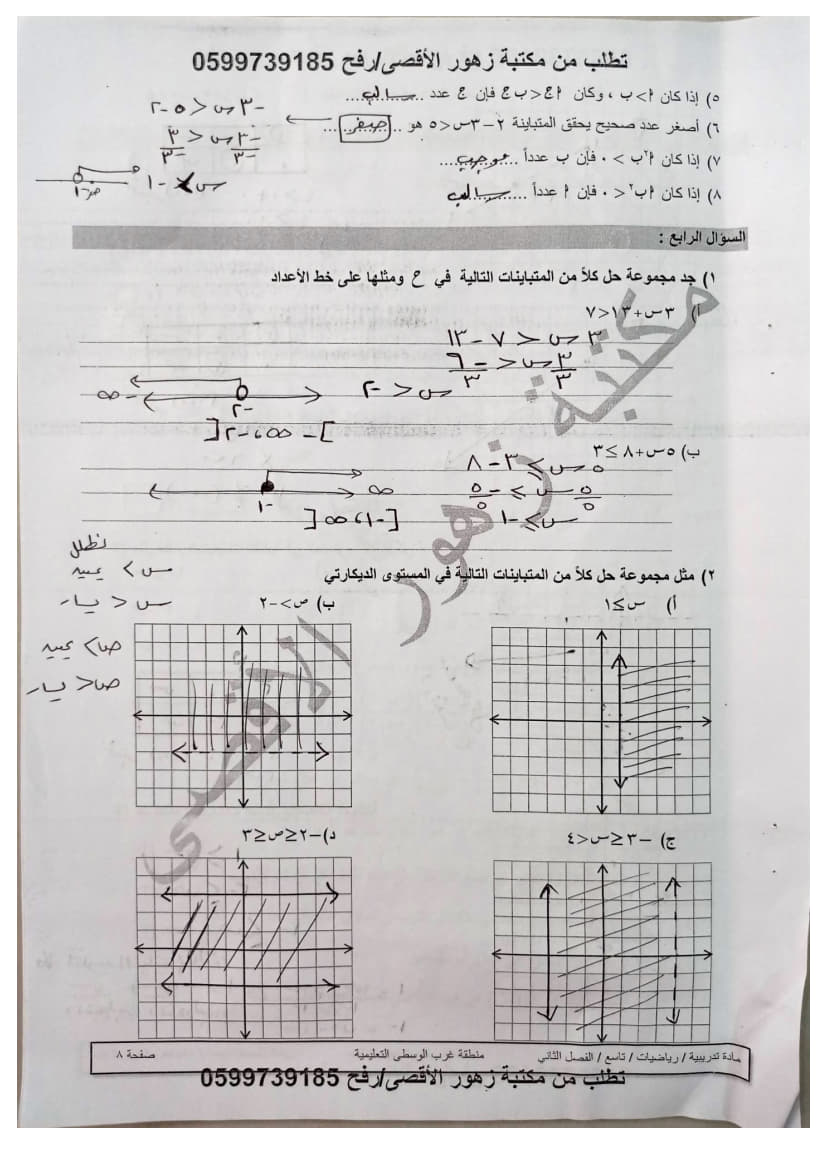 تطلب من مكتبة زهور الأقصى/رفح 0599739185
٥) إذا كان أ > ب ، وكان أج < ب ج فإن ج عدد ....سالب....
٦) أصغر عدد صحيح يحقق المتباينة ٢-٣س<٥ هو ...صفر...
٧) إذا كان أ٢ب > ٠ فإن ب عدداً ...موجب...
٨) إذا كان أب٢ < ٠ فإن أ عدداً ...سالب...
-٣س < ٥-٢
-٣س < ٣
-٣ -٣
س > -١
-١ صفر
السؤال الرابع :
١) جد مجموعة حل كلاً من المتباينات التالية في ح ومثلها على خط الأعداد
أ) ٣س+١٣<٧
٣س < ٧-١٣
٣س < -٦
٣ ٣
س < -٢
-∞ -٢
]-∞،-٢[
ب) ٥س+٨≥٣
٥س ≥ ٣-٨
٥س ≥ -٥
٥ ٥
س ≥ -١
-١ ∞
[-١،∞[
٢) مثل مجموعة حل كلاً من المتباينات التالية في المستوى الديكارتي
نظلل
س > يمين
س < يسار
ص > يمين
ص < يسار
أ) س≥١
ب) ص>-٢
ج) -٣≤س<٤
د) -٢≤ص≤٣
مادة تدريبية / رياضيات / تاسع / الفصل الثاني منطقة غرب الوسطى التعليمية صفحة ٨
تطلب من مكتبة زهور الأقصى/رفح 0599739185
مكتبة زهور الأقصى